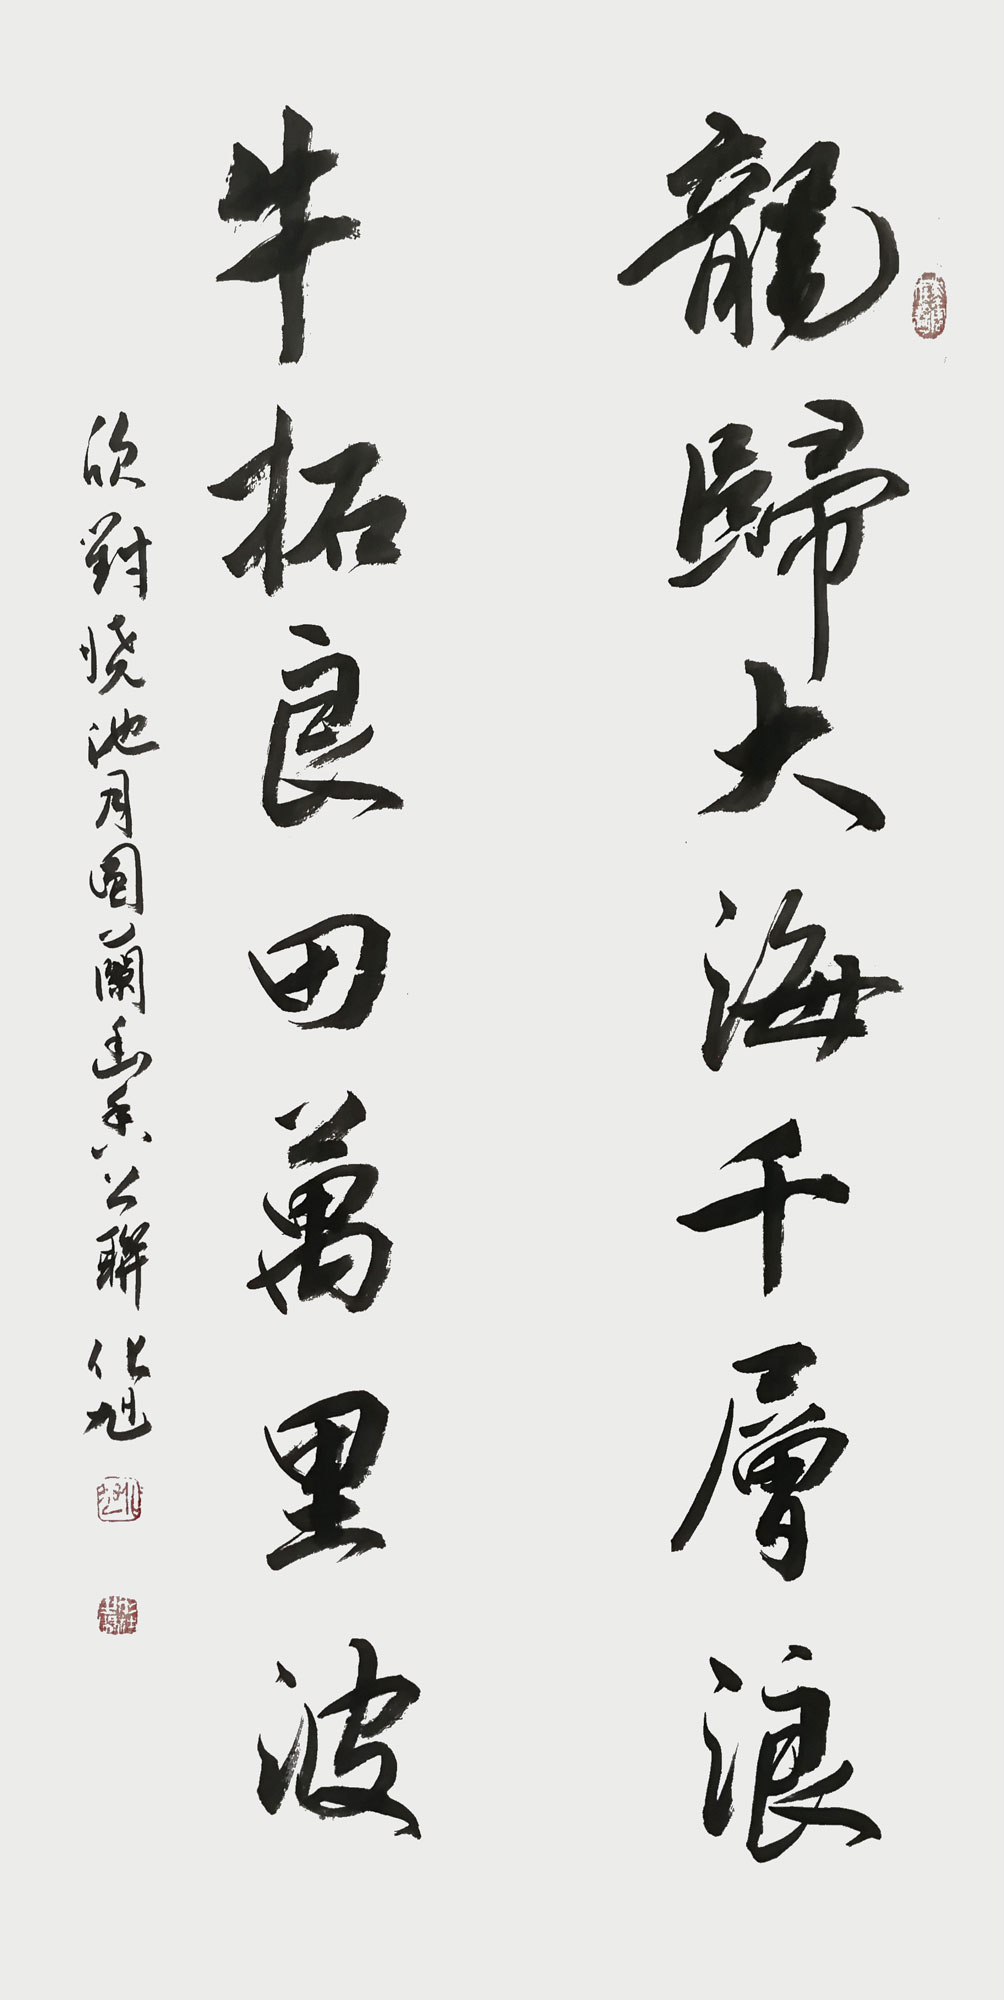 龍歸大海千層浪
牛拓良田萬里波
欣對曉池月圓蘭幽香公聯 化旭